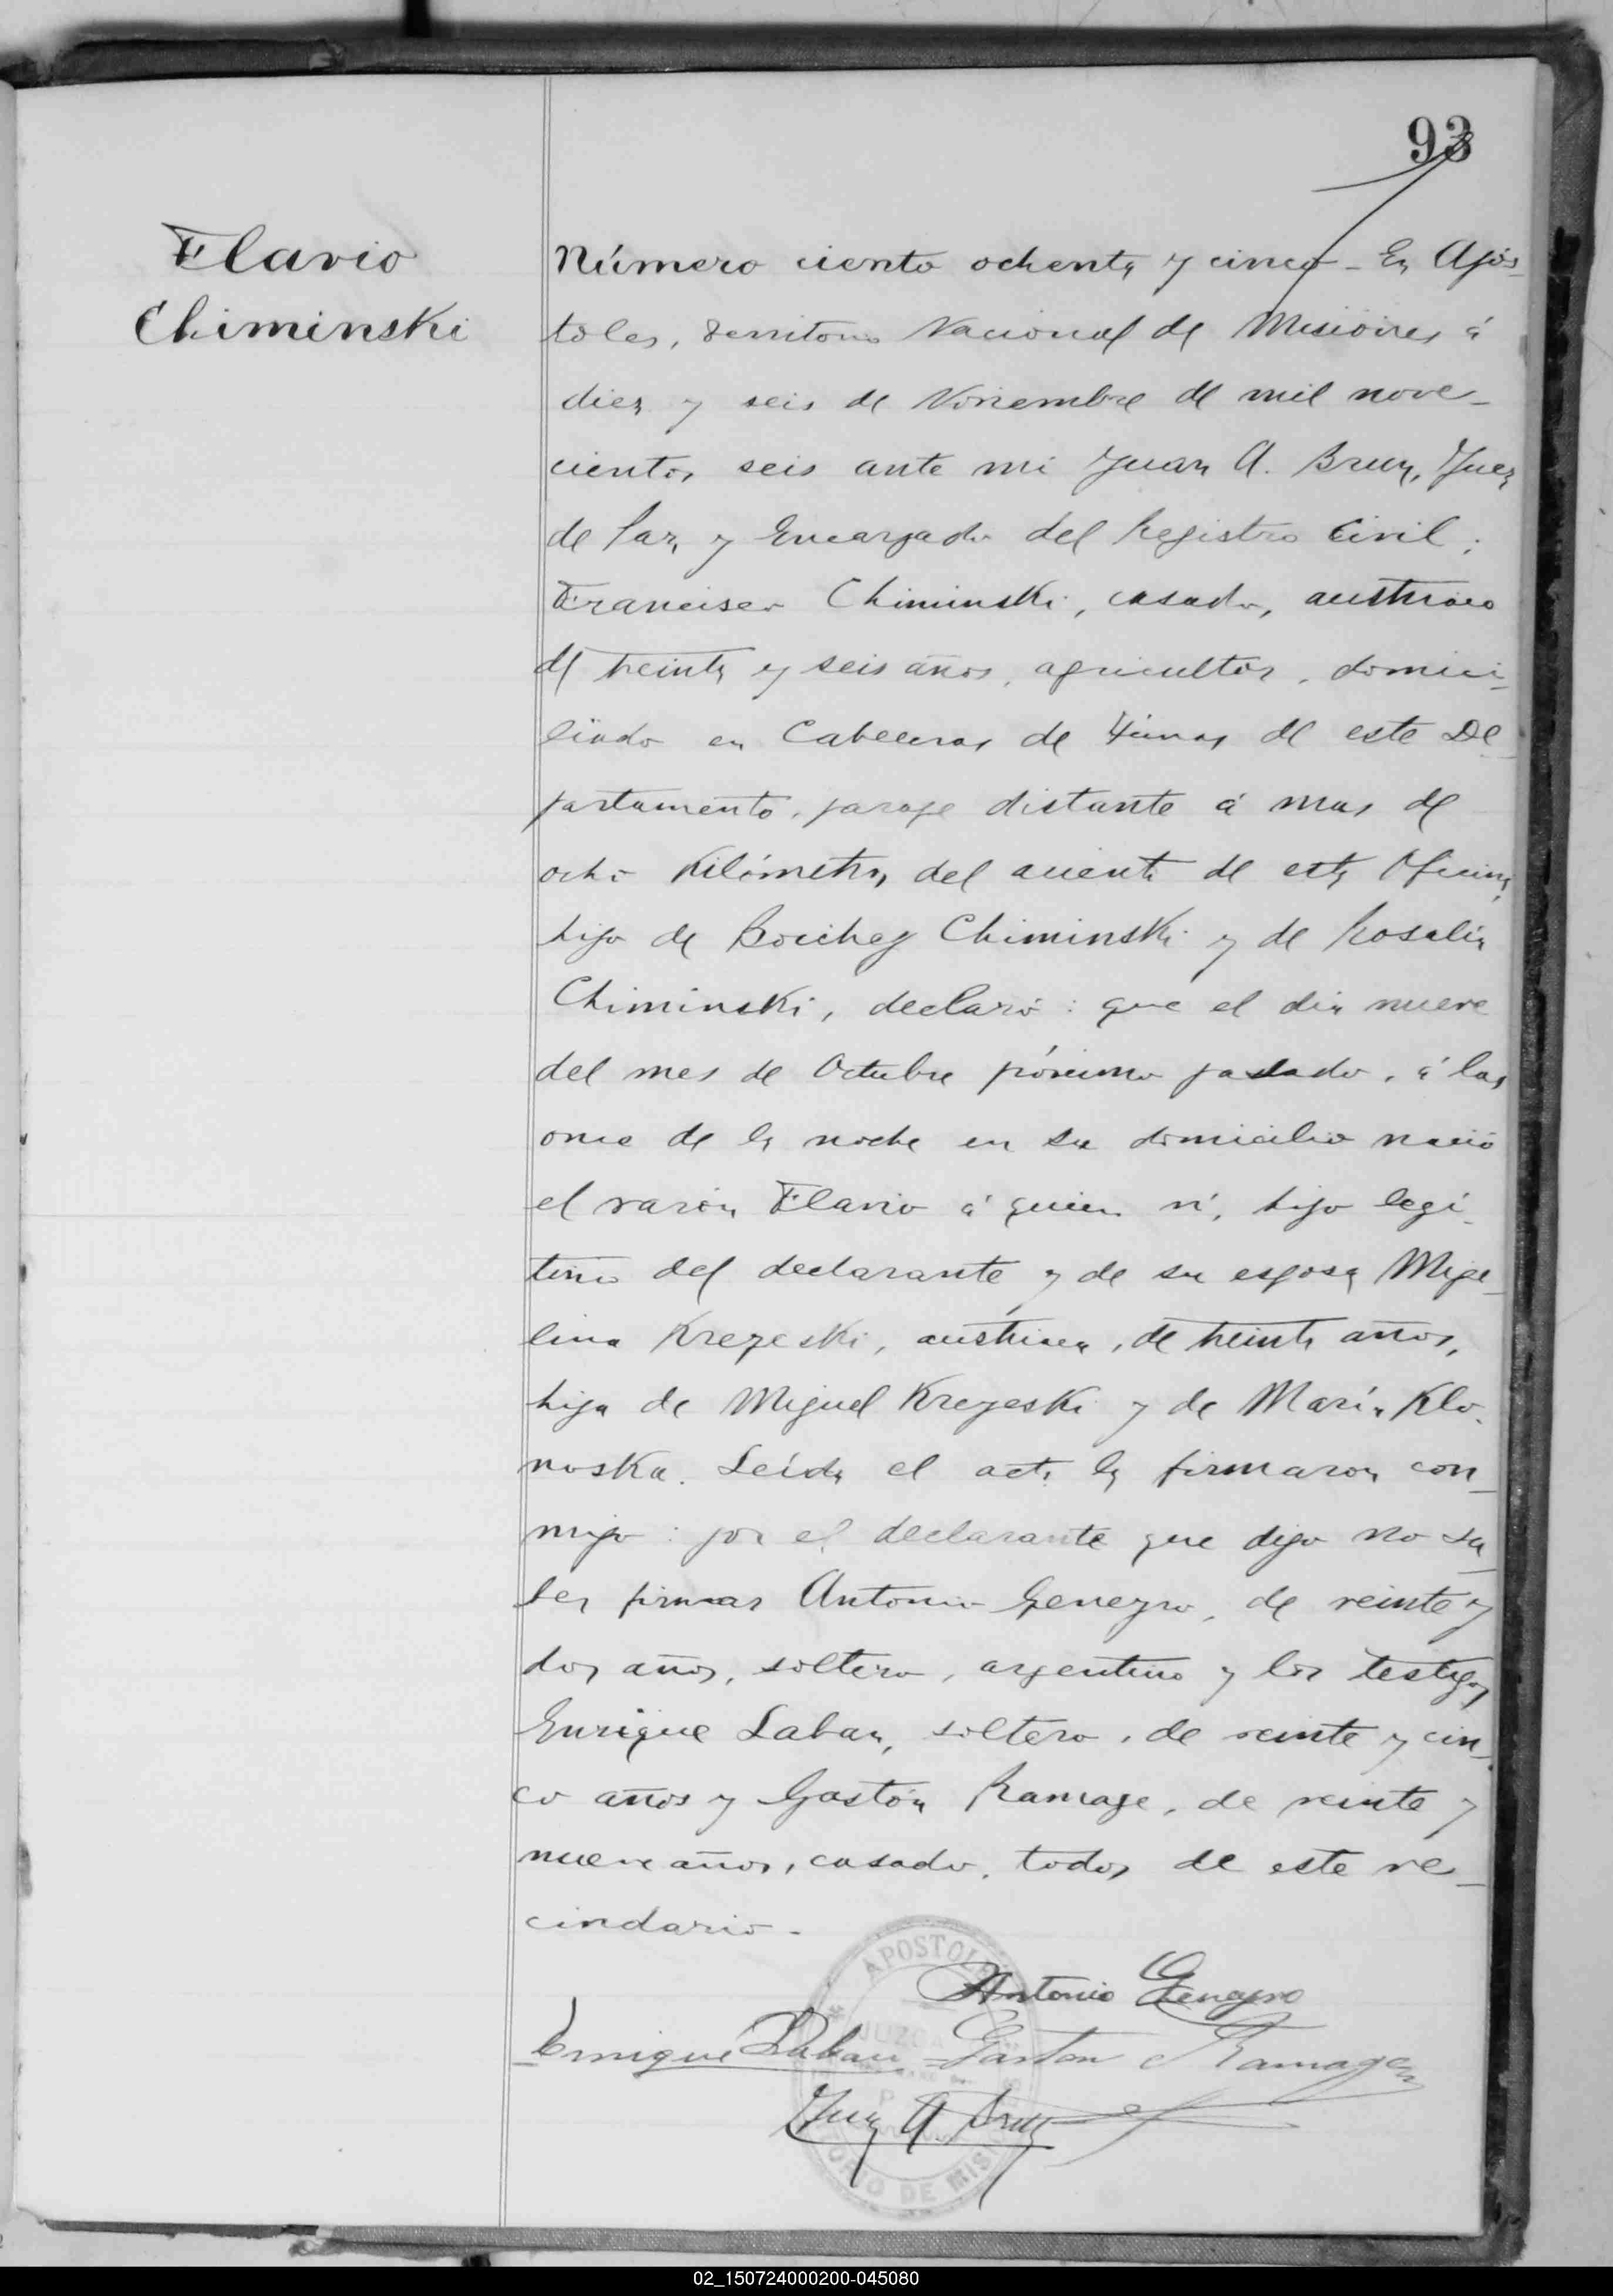 93
Flavio
Chiminski
Número ciento ochenta y cinco - En Após-
toles, Territorio Nacional de Misiones á
diez y seis de Noviembre de mil nove-
cientos seis ante mi Juan A. Brun, Juez
de Paz y Encargado del Registro Civil;
Francisco Chiminski, casado, austriaco
de treinta y seis años, agricultor, domici-
liado en Cabeceras de Tunas de este De-
partamento, paraje distante á mas de
ocho Kilómetros del asiento de esta Oficina,
hijo de Boichej Chiminski y de Rosalia
Chiminski, declaró: que el dia nueve
del mes de Octubre próximo pasado, á las
once de la noche en su domicilio nació
el varón Flavio á quien ví, hijo legí-
timo del declarante y de su esposa Mige-
lina Krezeski, austriaca, de treinta años,
hija de Miguel Krezeski y de María Klo-
noska. Leída el acta la firmaron con-
migo: por el declarante que dijo no sa-
ber firmar Antonio Genezro, de veinte y
dos años, soltero, argentino y los testigos
Enrique Laban, soltero, de veinte y cin-
co años y Gastón Ramage, de veinte y
nueve años, casado, todos de este ve-
cindario-
APOSTOLES
Antonio
Enrique Laban Gaston Ramage
Juan A. Brun
DE MIS
02_150724000200-045080